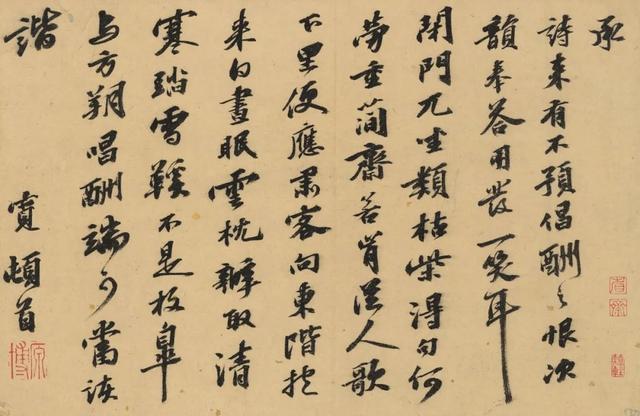 承
詩来有不預倡酬之恨次
韻奉答用發一笑耳
閉門兀坐類枯柴得句何
勞重簡齋若肯從人歌
下里便應肅客向東階抱
来白晝眠雲枕辦取清
寒踏雪鞵不是枚皐
与方朔唱酬端可當詼
諧
寬頓首
原博